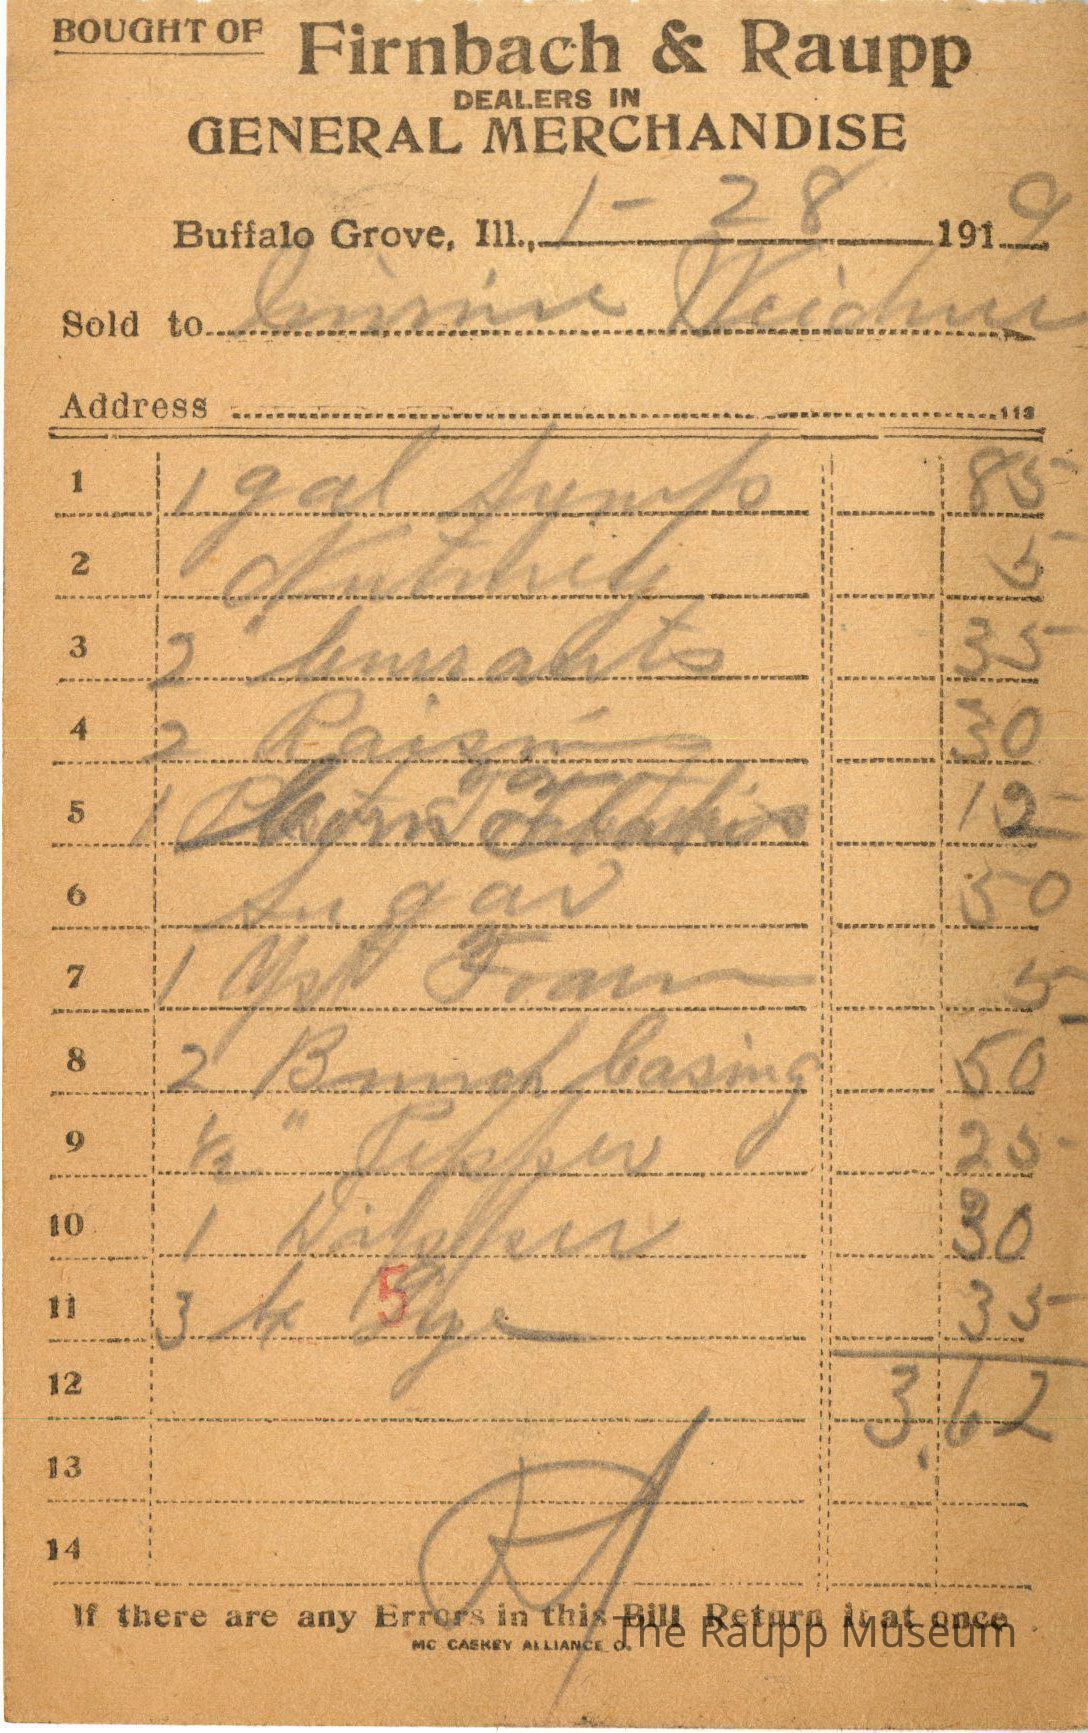 BOUGHT OF Firnbach & Raupp
DEALERS IN
GENERAL MERCHANDISE
Buffalo Grove, Ill., 1-28 1919
Sold to Minnie Weidner
Address 113
1 1 gal Syrup 85
2 Nutmeg 5
3 2 " Currants 35
4 2 Raisins 30
5 1 Corn 12
6 Sugar 50
7 1 Yst Foam 5
8 2 Bunch Casing 50
9 ½ " Pepper 25
10 1 30
11 3 lb Rye 35
5
12 3.62
13
14
If there are any Errors in this Bill Return it at once
MC CASKEY ALLIANCE, O.
The Raupp Museum